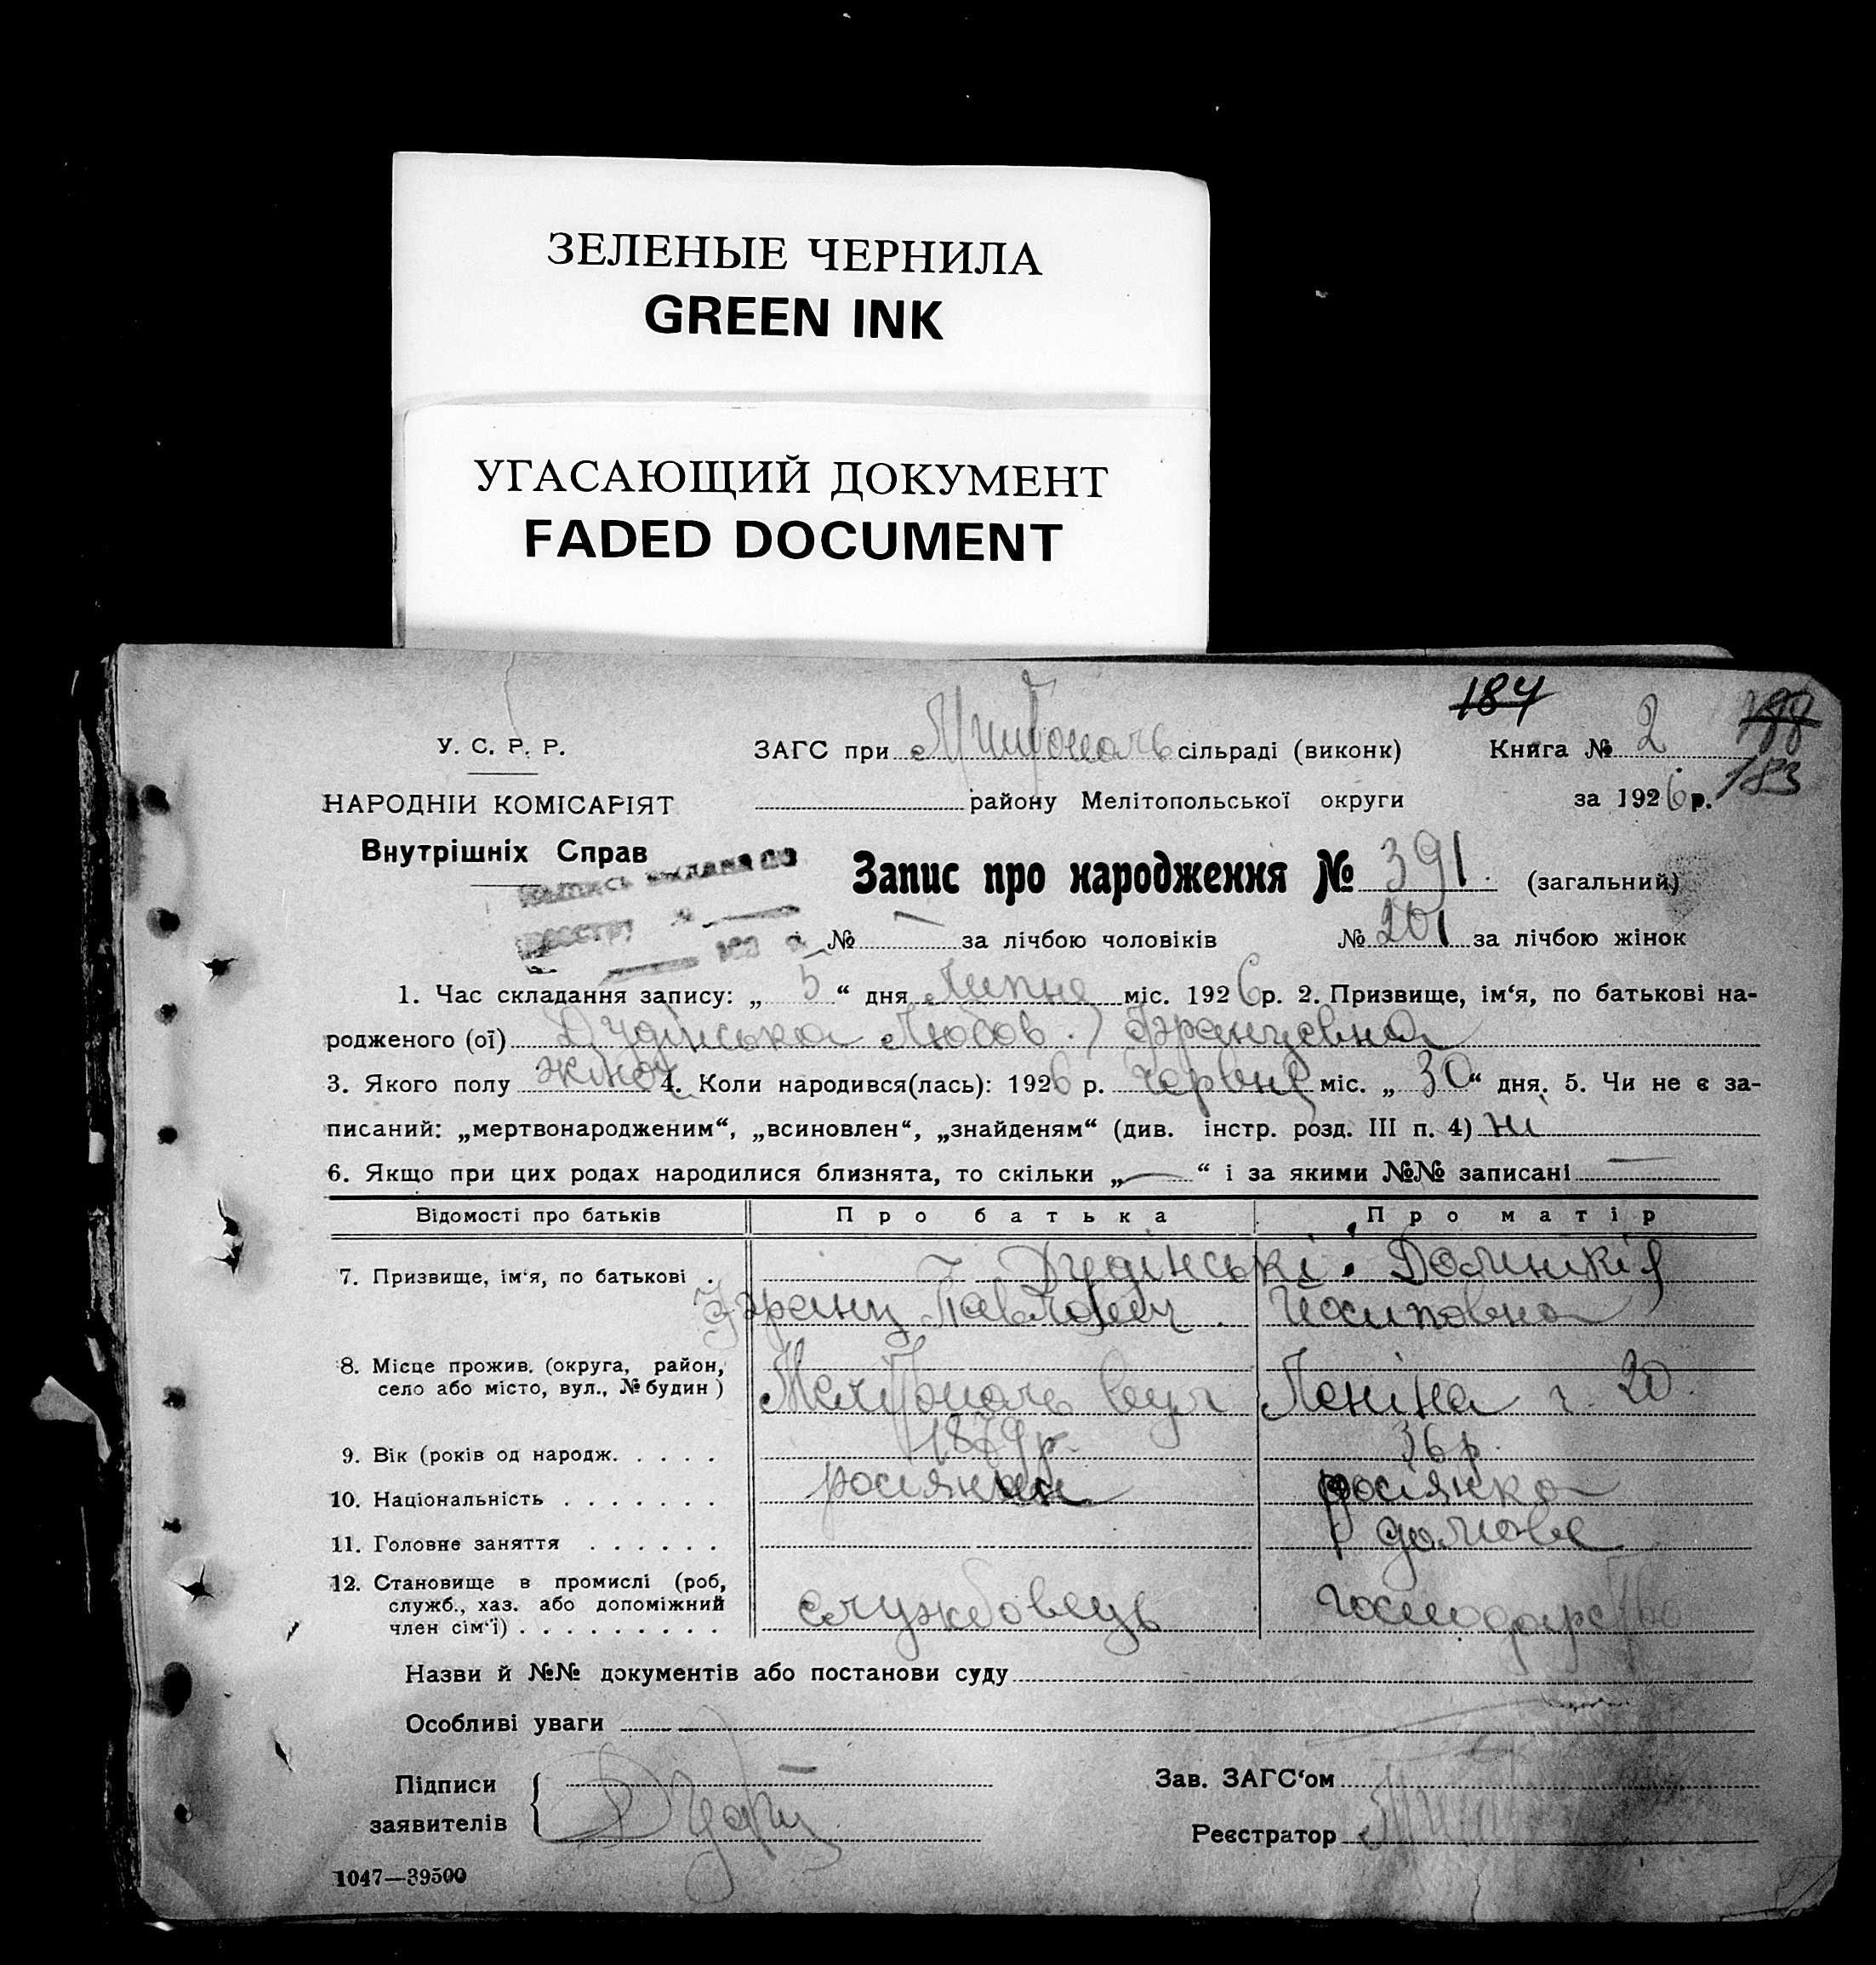 ЗЕЛЕНЫЕ ЧЕРНИЛА
GREEN INK
УГАСАЮЩИЙ ДОКУМЕНТ
FADED DOCUMENT
184
У. С. Р. Р. ЗАГС при сільраді (виконк) Книга № 2
183
НАРОДНІЙ КОМІСАРІЯТ району Мелітопольської округи за 1926 р.
Внутрішніх Справ
Запис про народження № 391. (загальний)
№ — за лічбою чоловіків № 201 за лічбою жінок
1. Час складання запису: „ 5 “ дня Липня міс. 1926 р. 2. Призвище, ім‘я, по батькові на-
родженого (ої) Дудінська Любов Францевна
3. Якого полу жіноч 4. Коли народився(лась): 1926 р. Червня міс. „ 30 “ дня. 5. Чи не є за-
писаний: „мертвонародженим“, „всиновлен“, „знайденям“ (див. інстр. розд. III п. 4) ні
6. Якщо при цих родах народилися близнята, то скільки „ — “ і за якими №№ записані —
Відомості про батьків Про батька Про матір
7. Призвище, ім‘я, по батькові . Дудінські
Франц Павлович . Йосиповна
8. Місце прожив. (округа, район,
село або місто, вул., № будин ) Мелітополь вул Леніна 20
9. Вік (років од народж. . . . . 1879 р. 36 р.
10. Національність . . . . . . . росіянин росіянка
11. Головне заняття . . . . . . домове
12. Становище в промислі (роб,
служб., хаз. або допоміжний службовець господарство
член сім‘ї) . . . . . . . . .
Назви й №№ документів або постанови суду
Особливі уваги
Підписи Зав. ЗАГС‘ом
заявителів Реєстратор
1047—39500